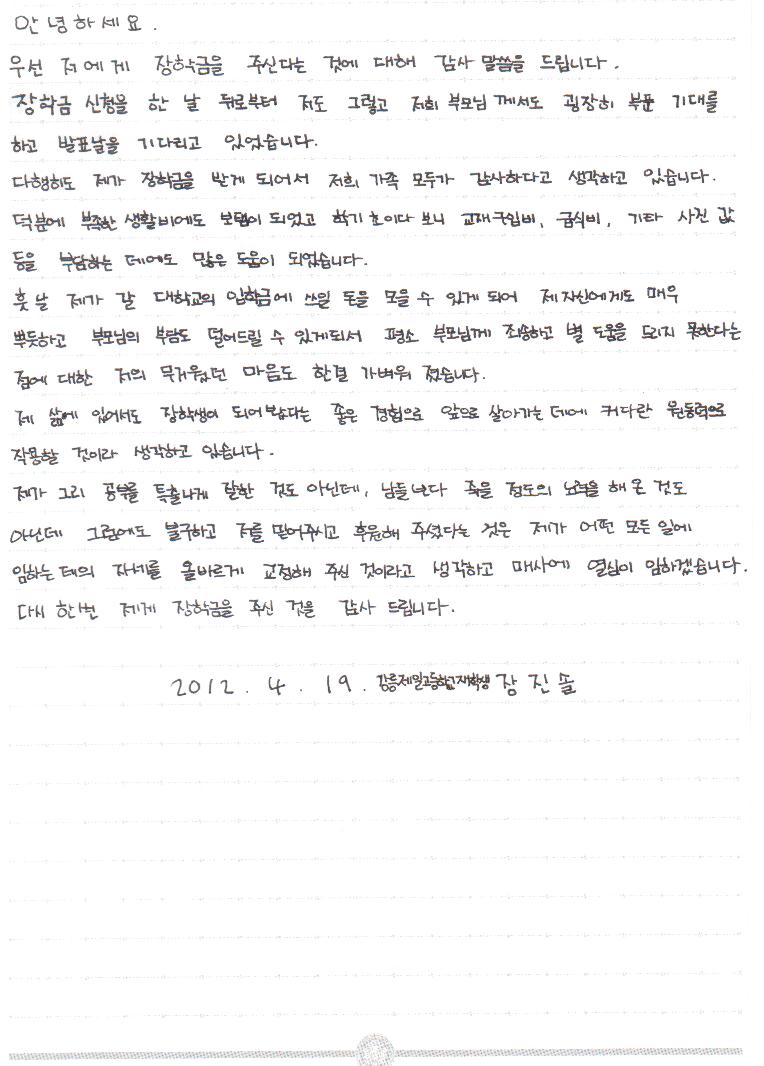 안녕하세요.
우선 저에게 장학금을 주신다는 것에 대해 감사 말씀을 드립니다.
장학금 신청을 한 날 뒤로부터 저도 그렇고 저희 부모님 께서도 굉장히 부푼 기대를
하고 발표날을 기다리고 있었습니다.
다행히도 제가 장학금을 받게 되어서 저희 가족 모두가 감사하다고 생각하고 있습니다.
덕분에 부족한 생활비에도 보탬이 되었고 학기 초이다 보니 교재구입비, 급식비, 기타 사진 값
등을 부담하는 데에도 많은 도움이 되었습니다.
훗날 제가 갈 대학교의 입학금에 쓰일 돈을 모을 수 있게 되어 제 자신에게도 매우
뿌듯하고 부모님의 부담도 덜어드릴 수 있게되서 평소 부모님께 죄송하고 별 도움을 드리지 못한다는
점에 대한 저의 무거웠던 마음도 한결 가벼워 졌습니다.
제 삶에 있어서도 장학생이 되어 봤다는 좋은 경험으로 앞으로 살아가는 데에 커다란 원동력으로
작용할 것이라 생각하고 있습니다.
제가 그리 공부를 특출나게 잘한 것도 아닌데, 남들보다 죽을 정도의 노력을 해 온 것도
아닌데 그럼에도 불구하고 저를 믿어주시고 후원해 주셨다는 것은 제가 어떤 모든 일에
임하는 데의 자세를 올바르게 교정해 주신 것이라고 생각하고 매사에 열심이 임하겠습니다.
다시 한번 제게 장학금을 주신 것을 감사 드립니다.
2012. 4. 19. 강릉제일고등학교재학생 장진솔